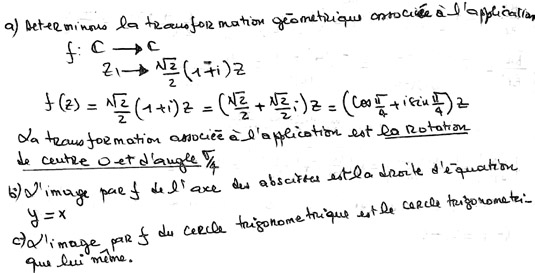 a) Determinons la transformation géométrique associée à l'application
f: ℂ → ℂ
Z ↦ √2/2 (1+i) Z
f(z) = √2/2 (1+i) Z = (√2/2 + √2/2 i) Z = (cos π/4 + i sin π/4) Z
La transformation associée à l'application est la rotation
de centre O et d'angle π/4
b) L'image par f de l'axe des abscisses est la droite d'équation
y = x
c) L'image par f du cercle trigonometrique est le cercle trigonometri-
que lui même.